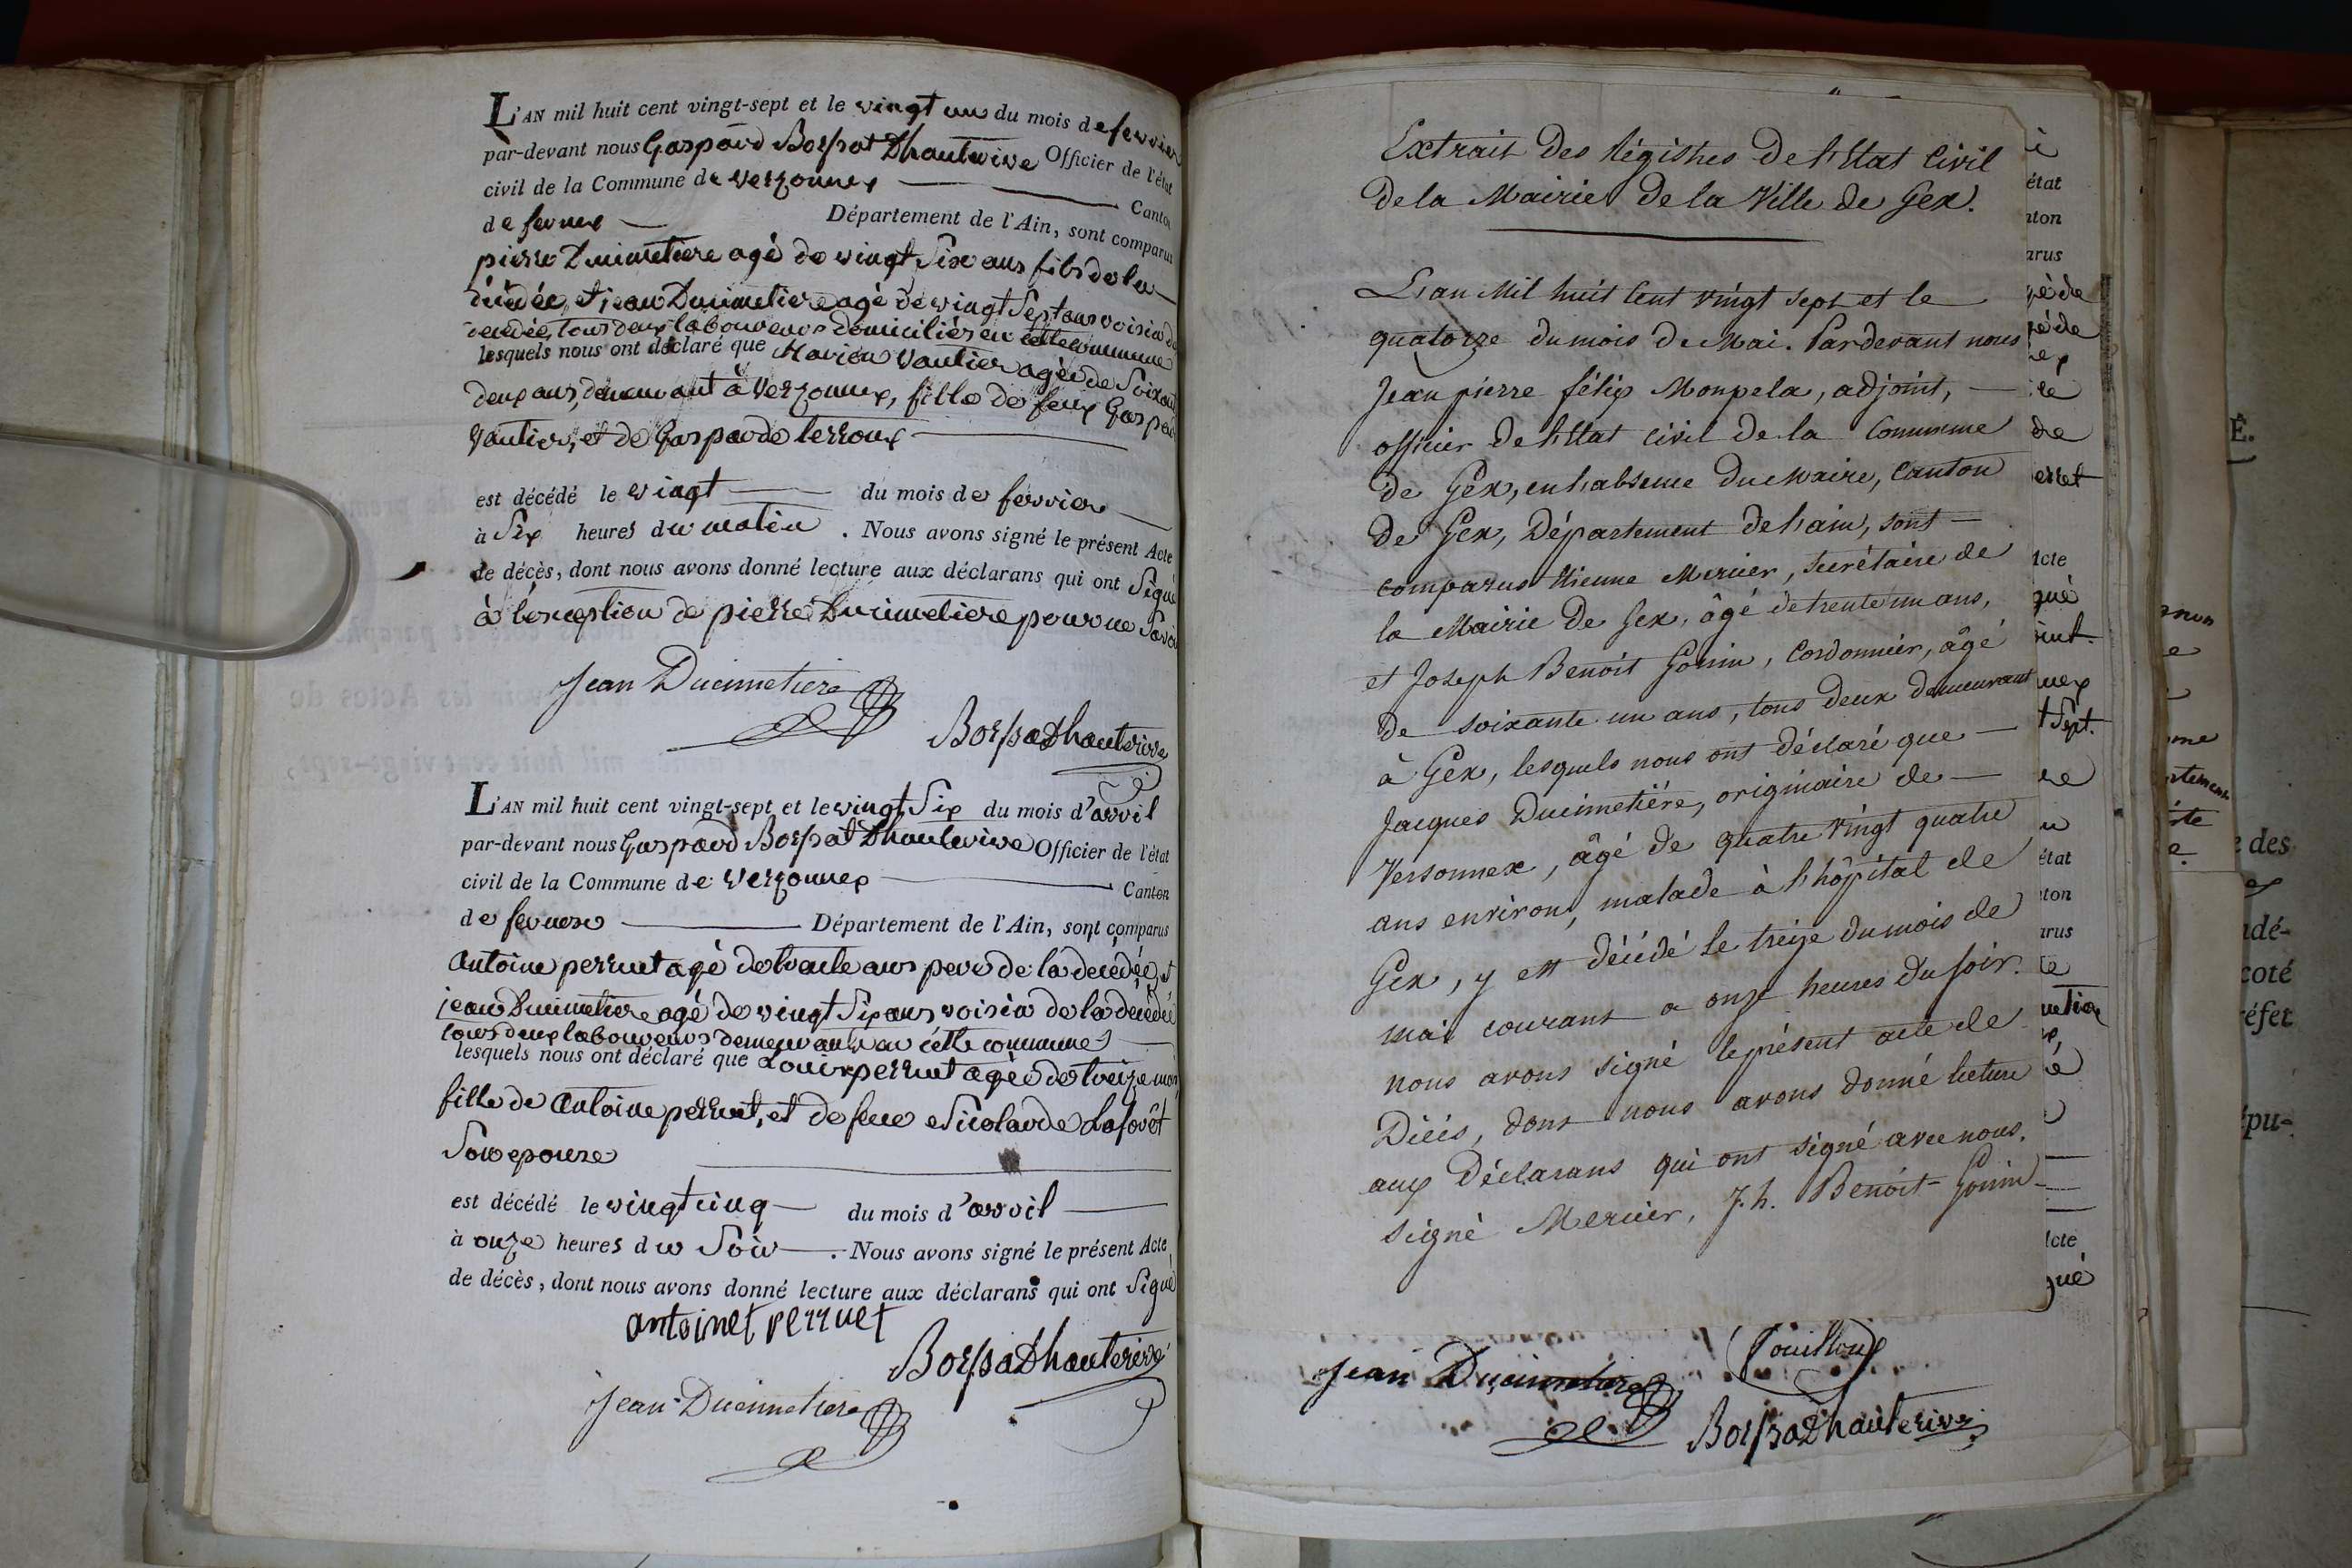 L'AN mil huit cent vingt-sept et le vingt un du mois de fevrier
par-devant nous Gaspard Borssat Dhauterive Officier de l'état
civil de la Commune de Verzonnex Canton
de fernex Département de l'Ain, sont comparus
pierre Ducimetiere agé de vingt Six ans fils de la
décédée, et jean Ducimetiere agé de vingt Sept ans voisin de
decedée, tous deux laboureurs domiciliés en cette commune
lesquels nous ont déclaré que Vautier agée de Soixante
deux ans, demeurant à Verzonnex, fille de feux Gaspard
Vautier, et de Gasparde
est décédé le vingt du mois de fevrier
à Six heures du matin . Nous avons signé le présent Acte
de décès, dont nous avons donné lecture aux déclarans qui ont Signé
à l'exception de pierre Ducimetiere pour ne Savoir
Jean Ducimetiere
BorssaDhauterive
L'AN mil huit cent vingt-sept et le vingt Six du mois d'avril
par-devant nous Gaspard Borssat Dhauterive Officier de l'état
civil de la Commune de Verzonnex Canton
de fernex Département de l'Ain, sont comparus
Antoine perruet agé de trente ans pere de la decedée, et
jean Ducimetiere agé de vingt Six ans voisin de la decedée
tous deux laboureurs demeurant en cette commune
lesquels nous ont déclaré que Louise perruet agée de treize mois
fille de Antoine perruet, et de feue Nicolarde Laforêt
Son epouze
est décédé le vingt cinq du mois d'avril
à onze heures du Soir . Nous avons signé le présent Acte
de décès, dont nous avons donné lecture aux déclarans qui ont Signé
antoinet perruet
BorssaDhauterive
Jean Ducimetiere
Extrait des Régistres de l'Etat Civil
de la Mairie de la Ville de Gex.
L'an Mil huit Cent vingt sept et le
quatorze du mois de Mai. Pardevant nous
Jean pierre félix Monpela, adjoint,
officier de l'Etat civil de la Commune
de Gex, en l'absence du Maire, Canton
de Gex, Département de l'ain, sont
comparus Etienne Mercier, secrétaire de
la Mairie de Gex, âgé de trente un ans,
et Joseph Benoit Gonin, Cordonnier, âgé
de soixante un ans, tous deux demeurant
à Gex, lesquels nous ont déclaré que
Jacques Ducimetiére, originaire de
Versonnex, âgé de quatre vingt quatre
ans environs, malade à l'hôpital de
Gex, y est décédé le treize du mois de
mai courant a onze heures du soir.
nous avons signé le présent acte de
Décès, dont nous avons donné lecture
aux Déclarans qui ont signé avec nous.
signé Mercier, J.h. Benoit Gonin
Jean Ducimetiere
Pouilloux
BorssaDhauterive
état
nton
arus
Acte
gné
t Sept.
état
ton
arus
Acte
gné
É.
e des
ndé-
coté
réfet
épu-